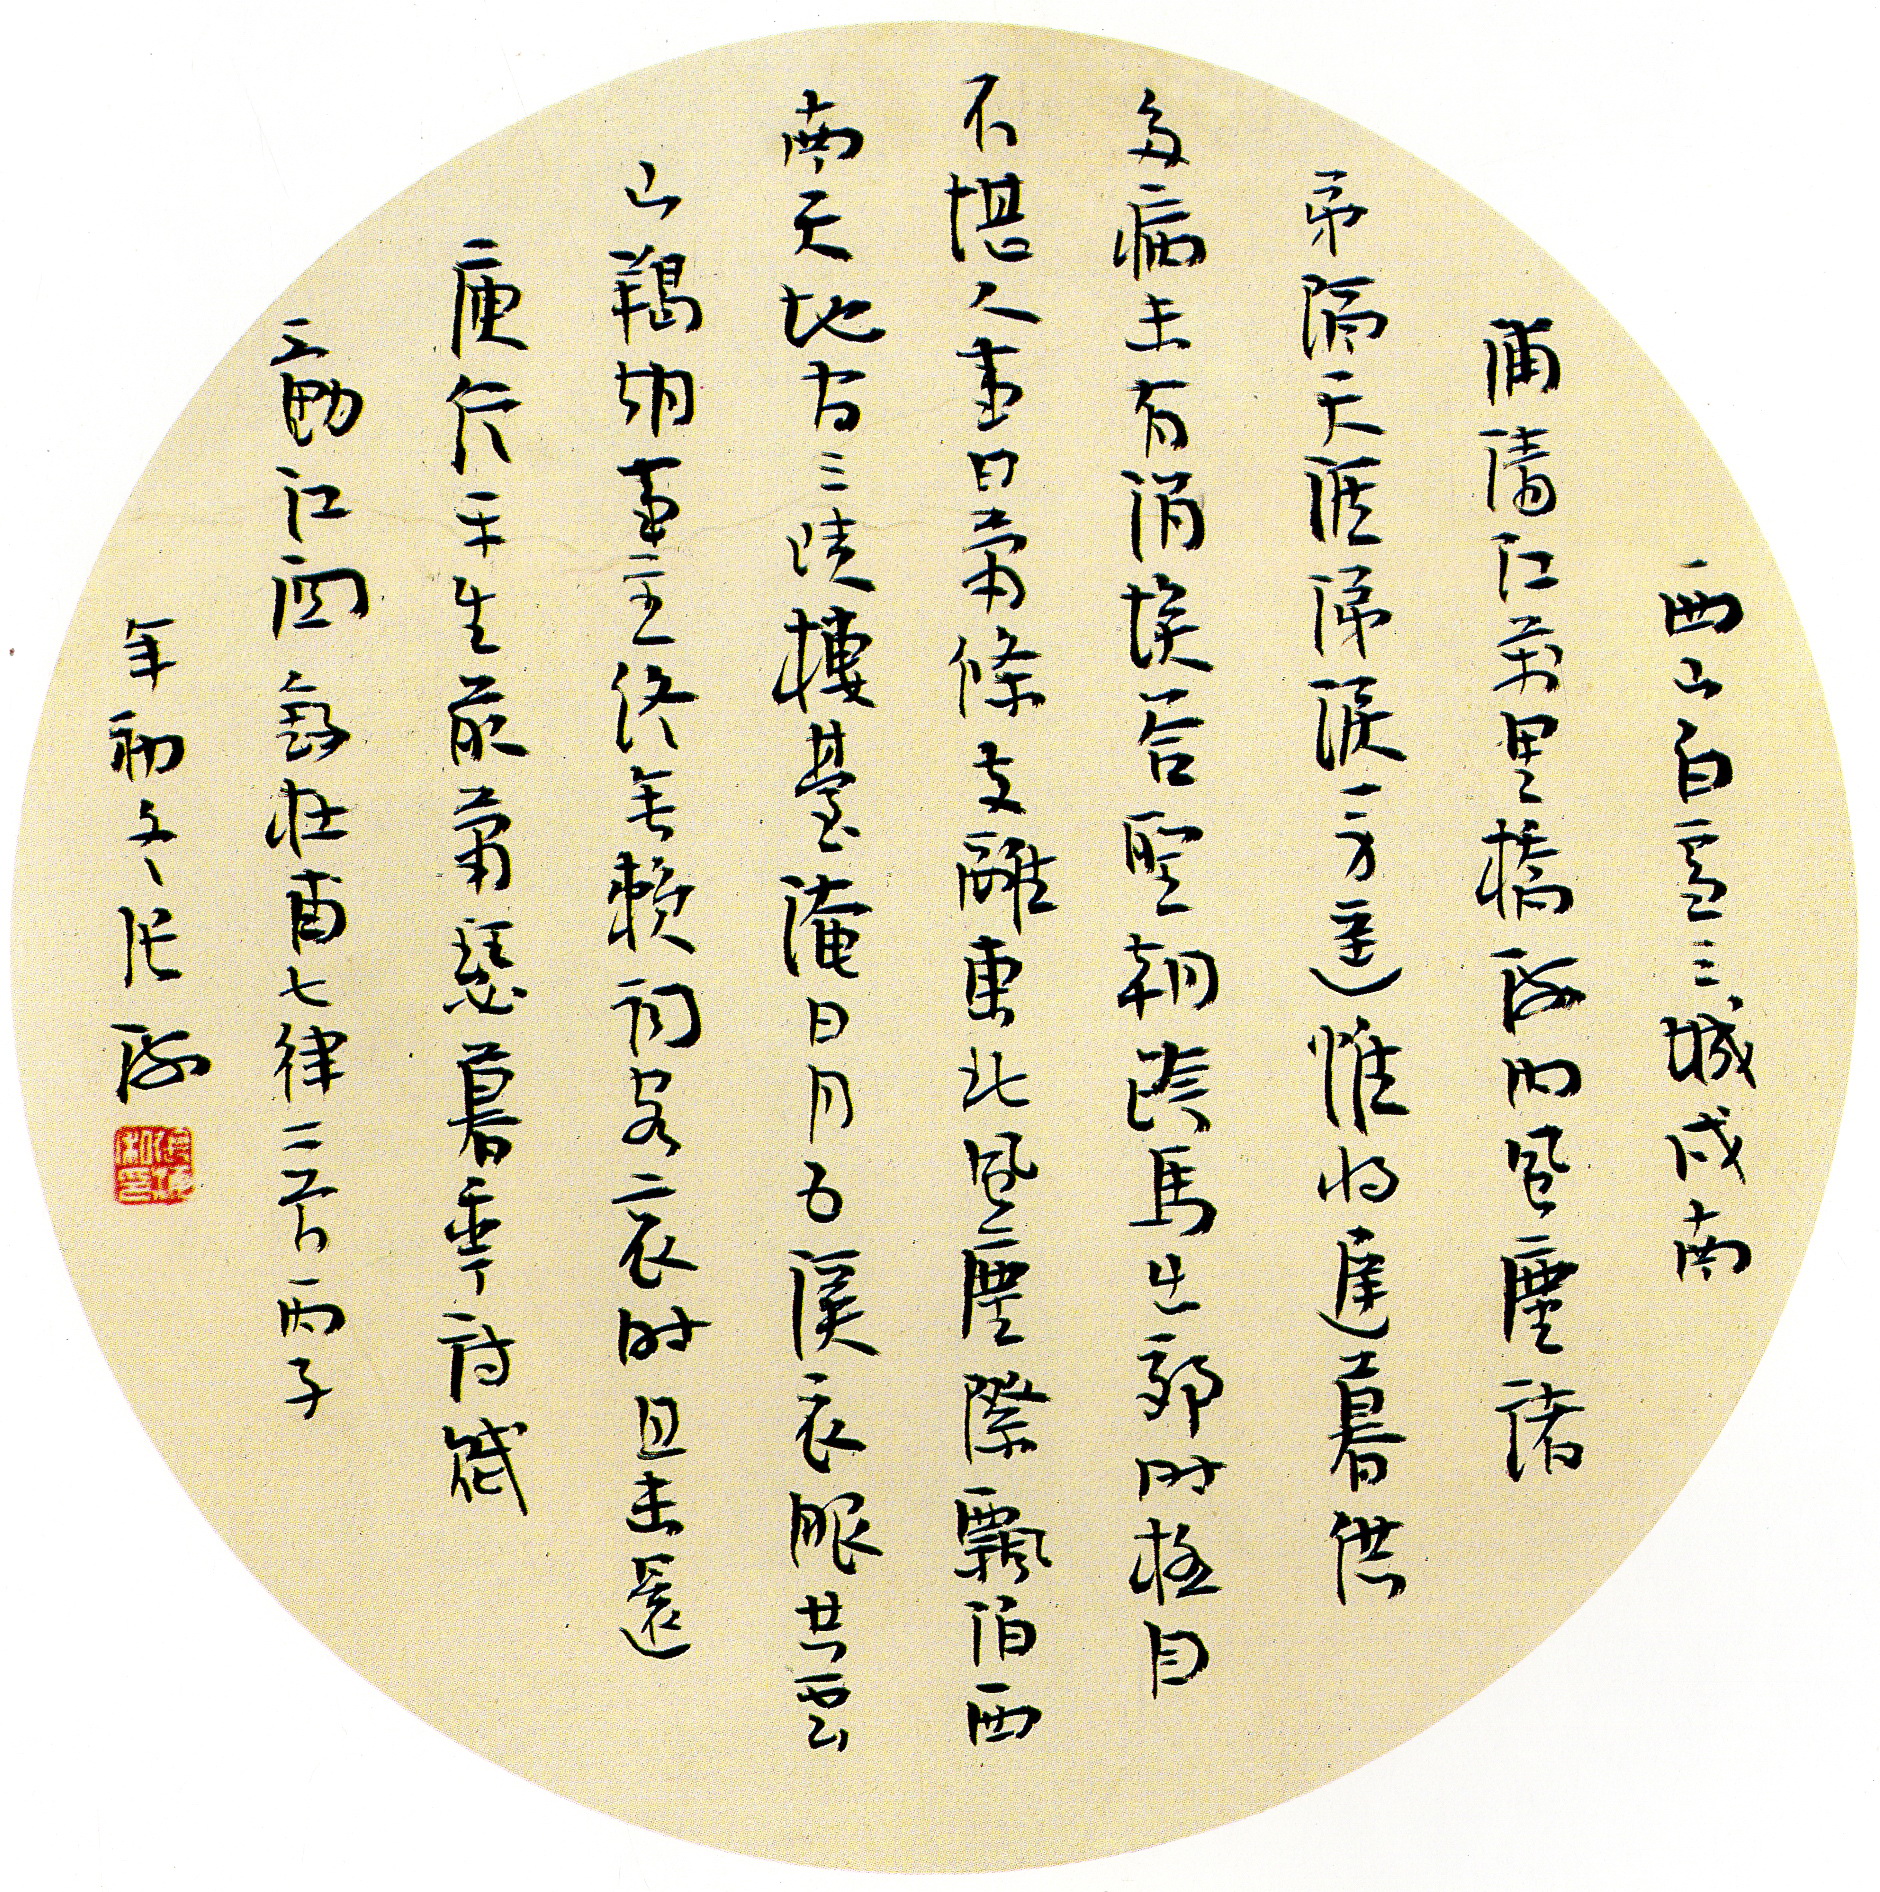 西山白雪三城戍南
浦清江萬里橋海內風塵諸
弟隔天涯涕淚一身遙惟將遲暮供
多病未有涓埃答聖朝跨馬出郊時極目
不堪人事日蕭條支離東北風塵際飄泊西
南天地間三峽樓臺淹日月五溪衣服共雲
山羯胡事主終無賴詞客哀時且未還
庾信平生最蕭瑟暮年詩賦
動江關錄杜甫七律二首丙子
年初冬張海